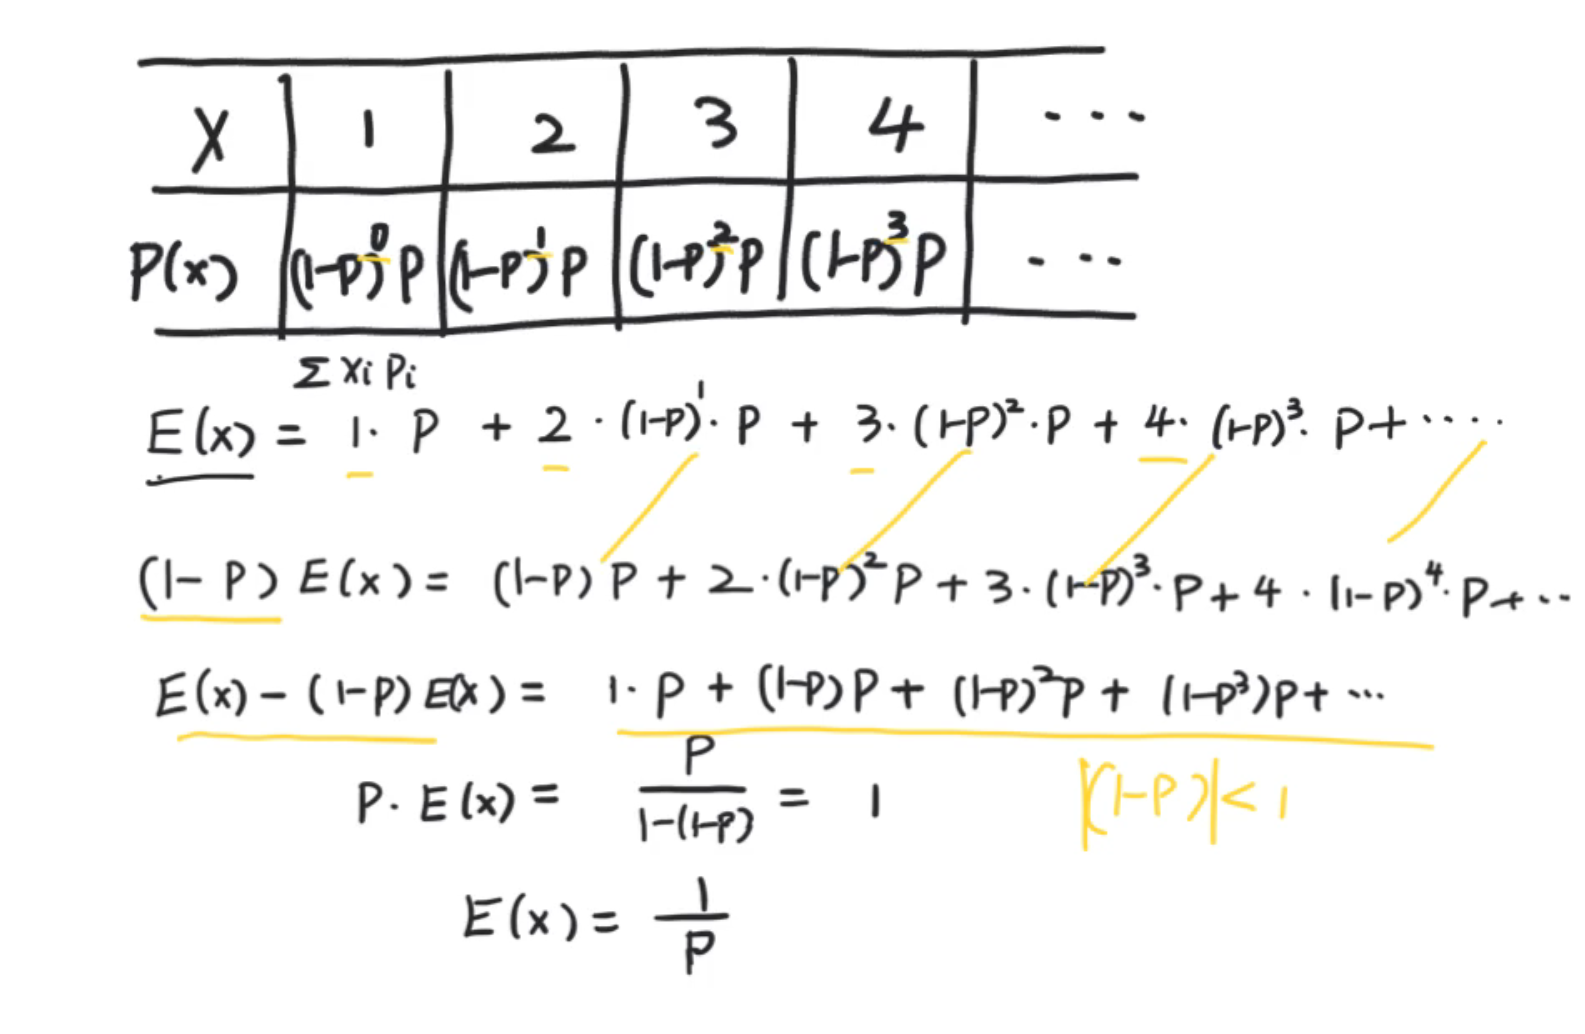 X 1 2 3 4 ...
P(x) (1-p)⁰p (1-p)¹p (1-p)²p (1-p)³p ...
Σ xᵢ pᵢ
E(x) = 1· P + 2 · (1-p)¹· P + 3· (1-p)²· P + 4· (1-p)³· P + ·····
(1- P) E(x) = (1-p) P + 2 ·(1-p)² P + 3 · (1-p)³· P + 4 · (1-p)⁴· P + ···
E(x) - (1-p) E(x) = 1· P + (1-p) P + (1-p)² P + (1-p³)p + ...
P· E(x) = P/(1-(1-p)) = 1 |(1-P)| < 1
E(x) = 1/P